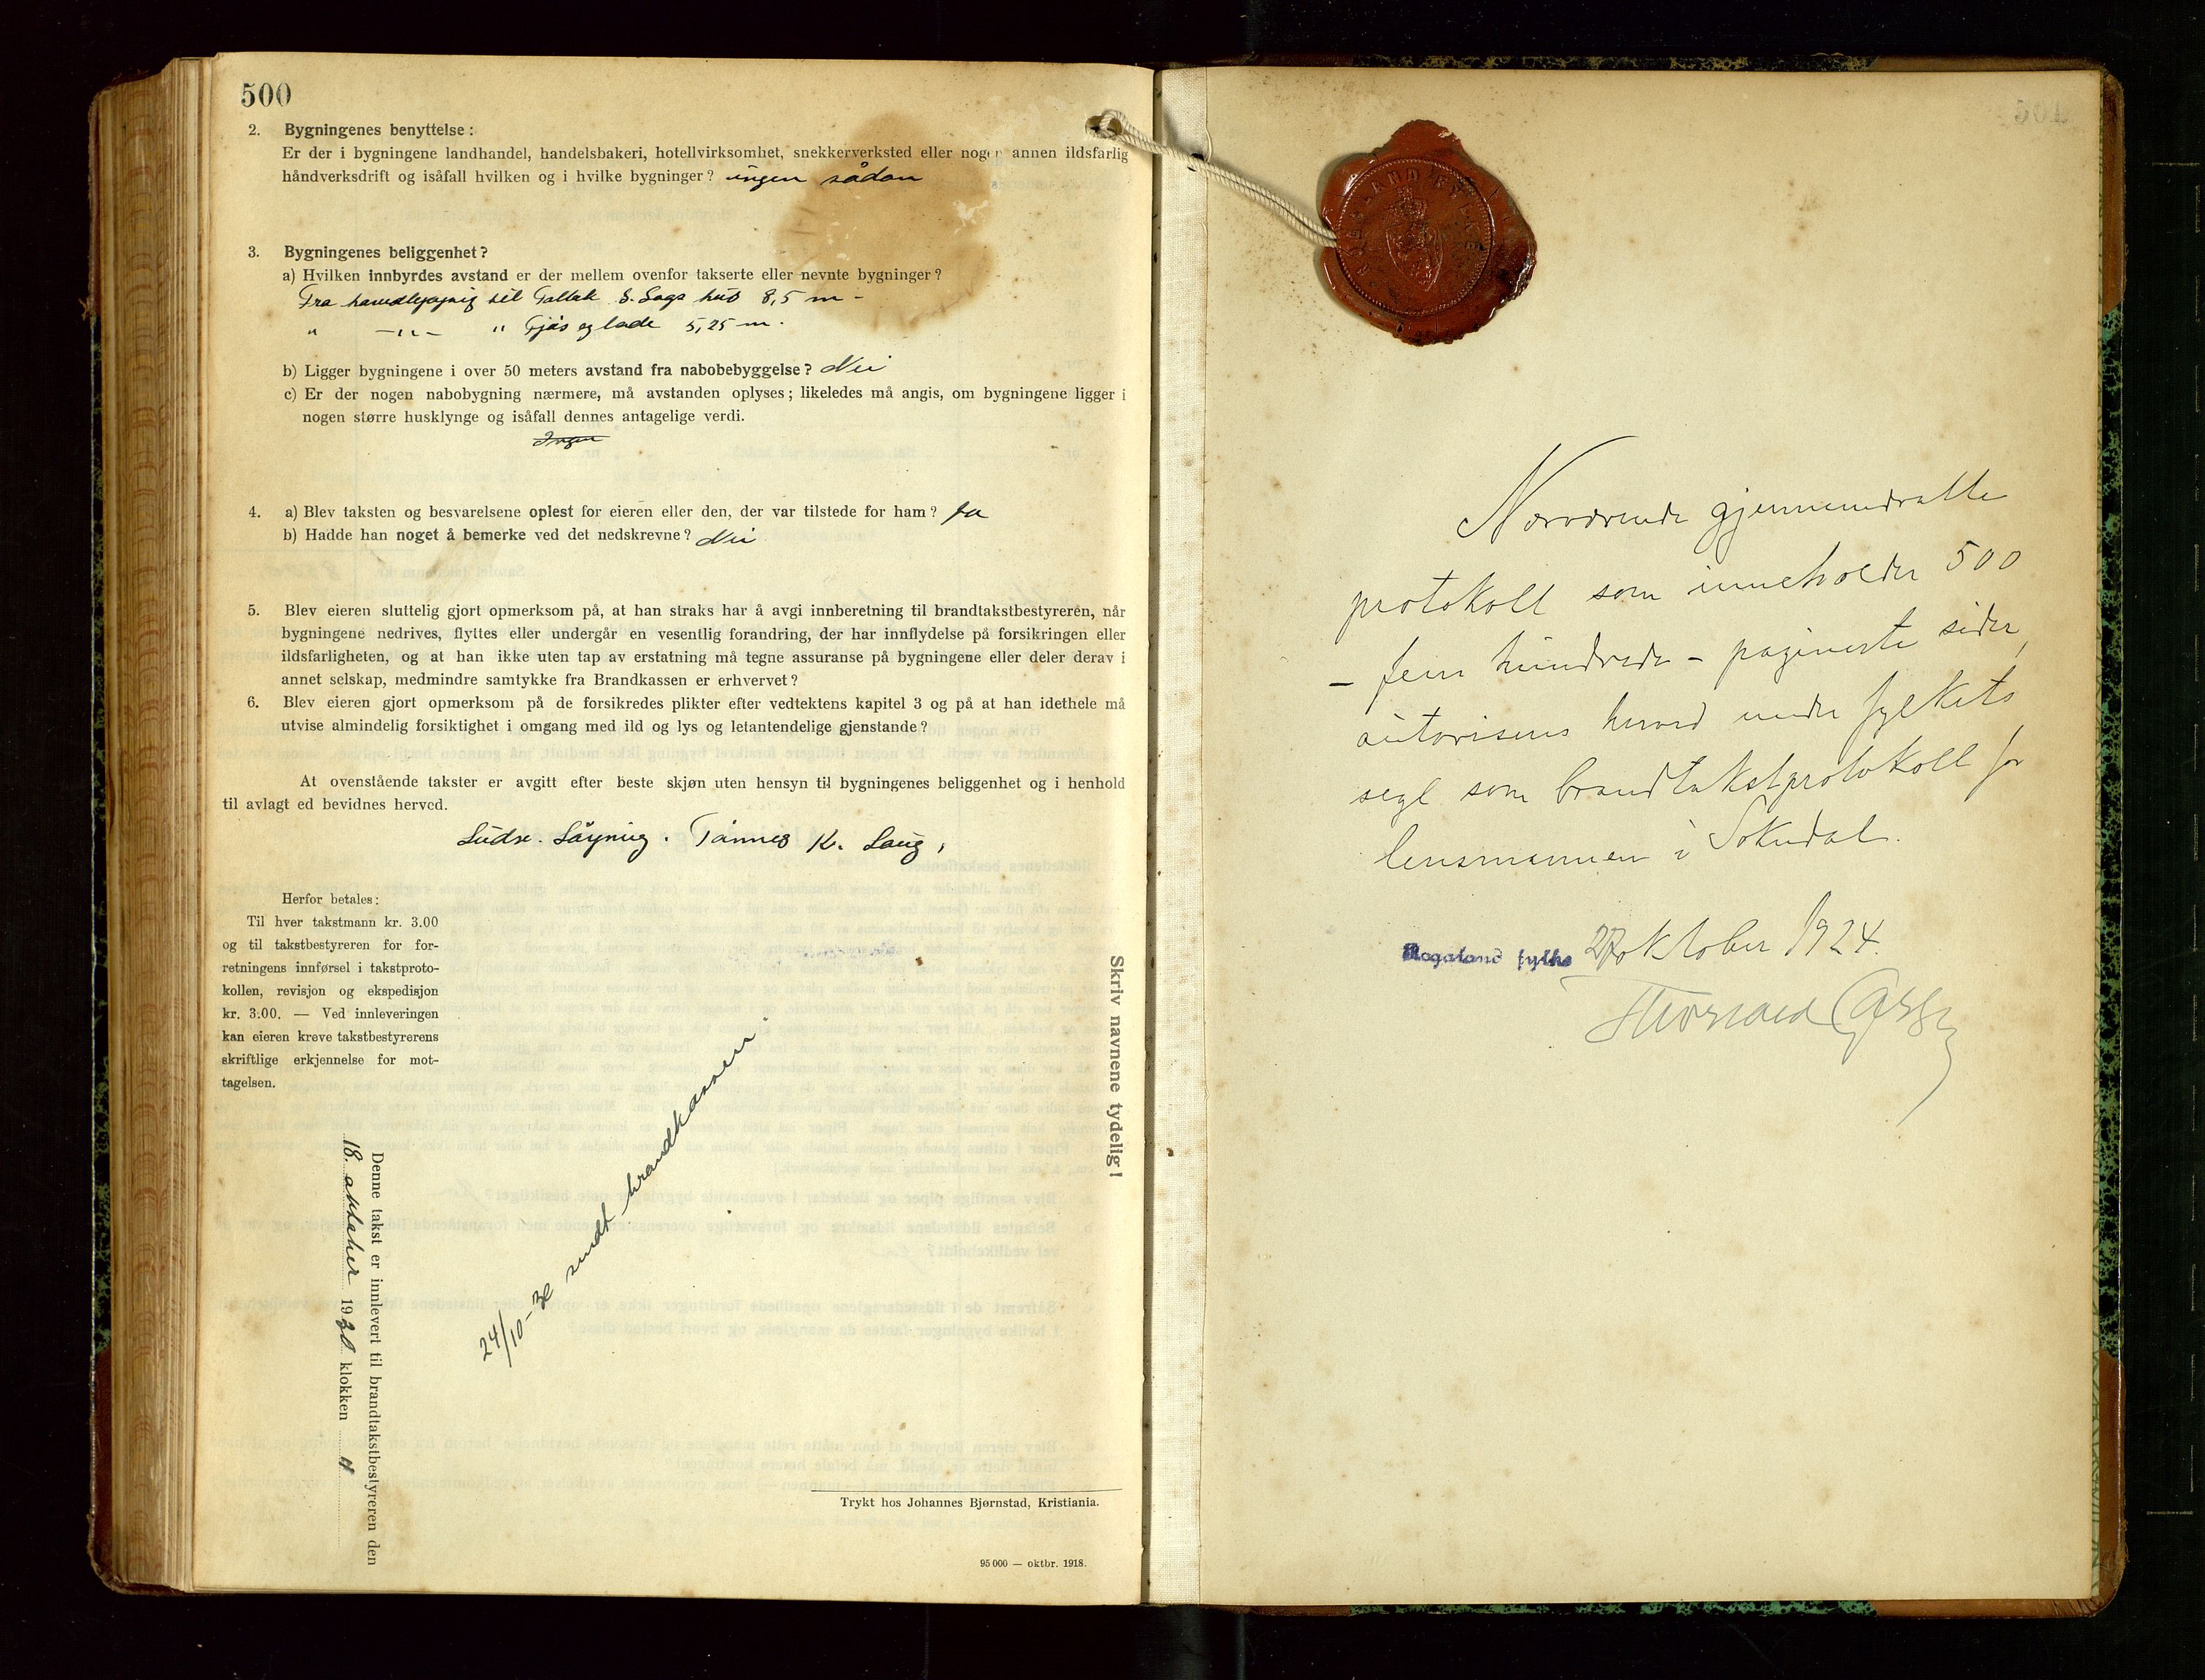 500
2. Bygningenes benyttelse :
Er der i bygningene landhandel, handelsbakeri, hotellvirksomhet, snekkerverksted eller nogen annen ildsfarlig
håndverksdrift og isåfall hvilken og i hvilke bygninger? ingen sådan
3. Bygningenes beliggenhet?
a) Hvilken innbyrdes avstand er der mellem ovenfor takserte eller nevnte bygninger?
Fra havedbygnig til Tallak S. Saga hus 8,5 m -
" -"- " Fjøs og lade 5,25 m.
b) Ligger bygningene i over 50 meters avstand fra nabobebyggelse? Nei
c) Er der nogen nabobygning nærmere, må avstanden oplyses; likeledes må angis, om bygningene ligger i
nogen større husklynge og isåfall dennes antagelige verdi.
Ingen
4. a) Blev taksten og besvarelsene oplest for eieren eller den, der var tilstede for ham? Ja
b) Hadde han noget å bemerke ved det nedskrevne? Nei
5. Blev eieren sluttelig gjort opmerksom på, at han straks har å avgi innberetning til brandtakstbestyreren, når
bygningene nedrives, flyttes eller undergår en vesentlig forandring, der har innflydelse på forsikringen eller
ildsfarligheten, og at han ikke uten tap av erstatning må tegne assuranse på bygningene eller deler derav i
annet selskap, medmindre samtykke fra Brandkassen er erhvervet?
6. Blev eieren gjort opmerksom på de forsikredes plikter efter vedtektens kapitel 3 og på at han idethele må
utvise almindelig forsiktighet i omgang med ild og lys og letantendelige gjenstande?
At ovenstående takster er avgitt efter beste skjøn uten hensyn til bygningenes beliggenhet og i henhold
til avlagt ed bevidnes herved.
Løyning. Tønnes K.
Herfor betales:
Til hver takstmann kr. 3.00
og til takstbestyreren for for-
retningens innførsel i takstproto-
kollen, revisjon og ekspedisjon
kr. 3.00. — Ved innleveringen
kan eieren kreve takstbestyrerens
skriftlige erkjennelse for mot-
tagelsen.
Denne takst er innlevert til brandtakstbestyreren den
18. oktober 1930 klokken 4
24/10-30 sendt brandkassen.
Skriv navnene tydelig!
Trykt hos Johannes Bjørnstad, Kristiania.
95 000 — oktbr. 1918.
ROGALAND FYLKE
Nærværende gjennemdratte
protokoll som inneholder 500
- fem hundrede - paginerte sider,
autoriseres herved under fylkets
segl som brandtakstprotokoll for
lensmannen i Sokndal.
Rogaland fylke 27 oktober 1924.